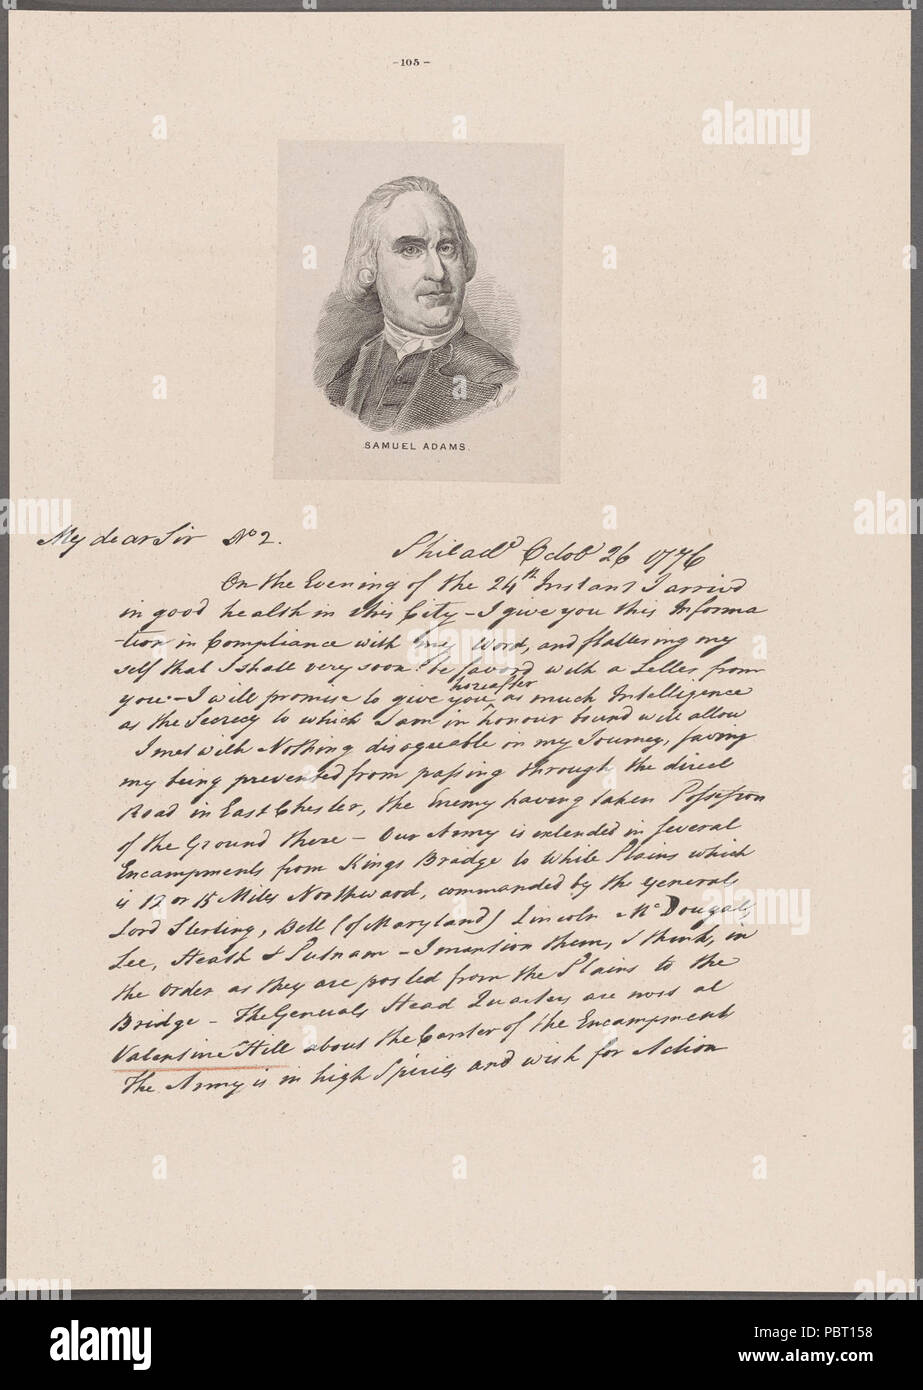 -105-
SAMUEL ADAMS.
My dear Sir No 2.
Philada Octob 26 1776
On the Evening of the 24th Instant I arrivd
in good health in this City - I give you this Informa
-tion in Compliance with my Word, and flattering my
self that I shall very soon be favord with a Letter from
you - I will promise to give you hereafter as much Intelligence
as the Secrecy to which I am in honour bound will allow
I met with Nothing disagreable in my Journey, saving
my being prevented from passing through the direct
Road in East Chester, the Enemy having taken Possession
of the Ground there - Our Army is extended in several
Encampments from Kings Bridge to White Plains which
is 12 or 15 Miles Northward, commanded by the Generals
Lord Sterling, Bell (of Maryland) Lincoln McDougall,
Lee, Heath & Putnam - I mention them, I think, in
the Order as they are posted from the Plains to the
Bridge - The Generals Head Quarters are now at
Valentine Hill about the Center of the Encampment
The Army is in high Spirits and wish for Action
alamy
PBT158
www.alamy.com